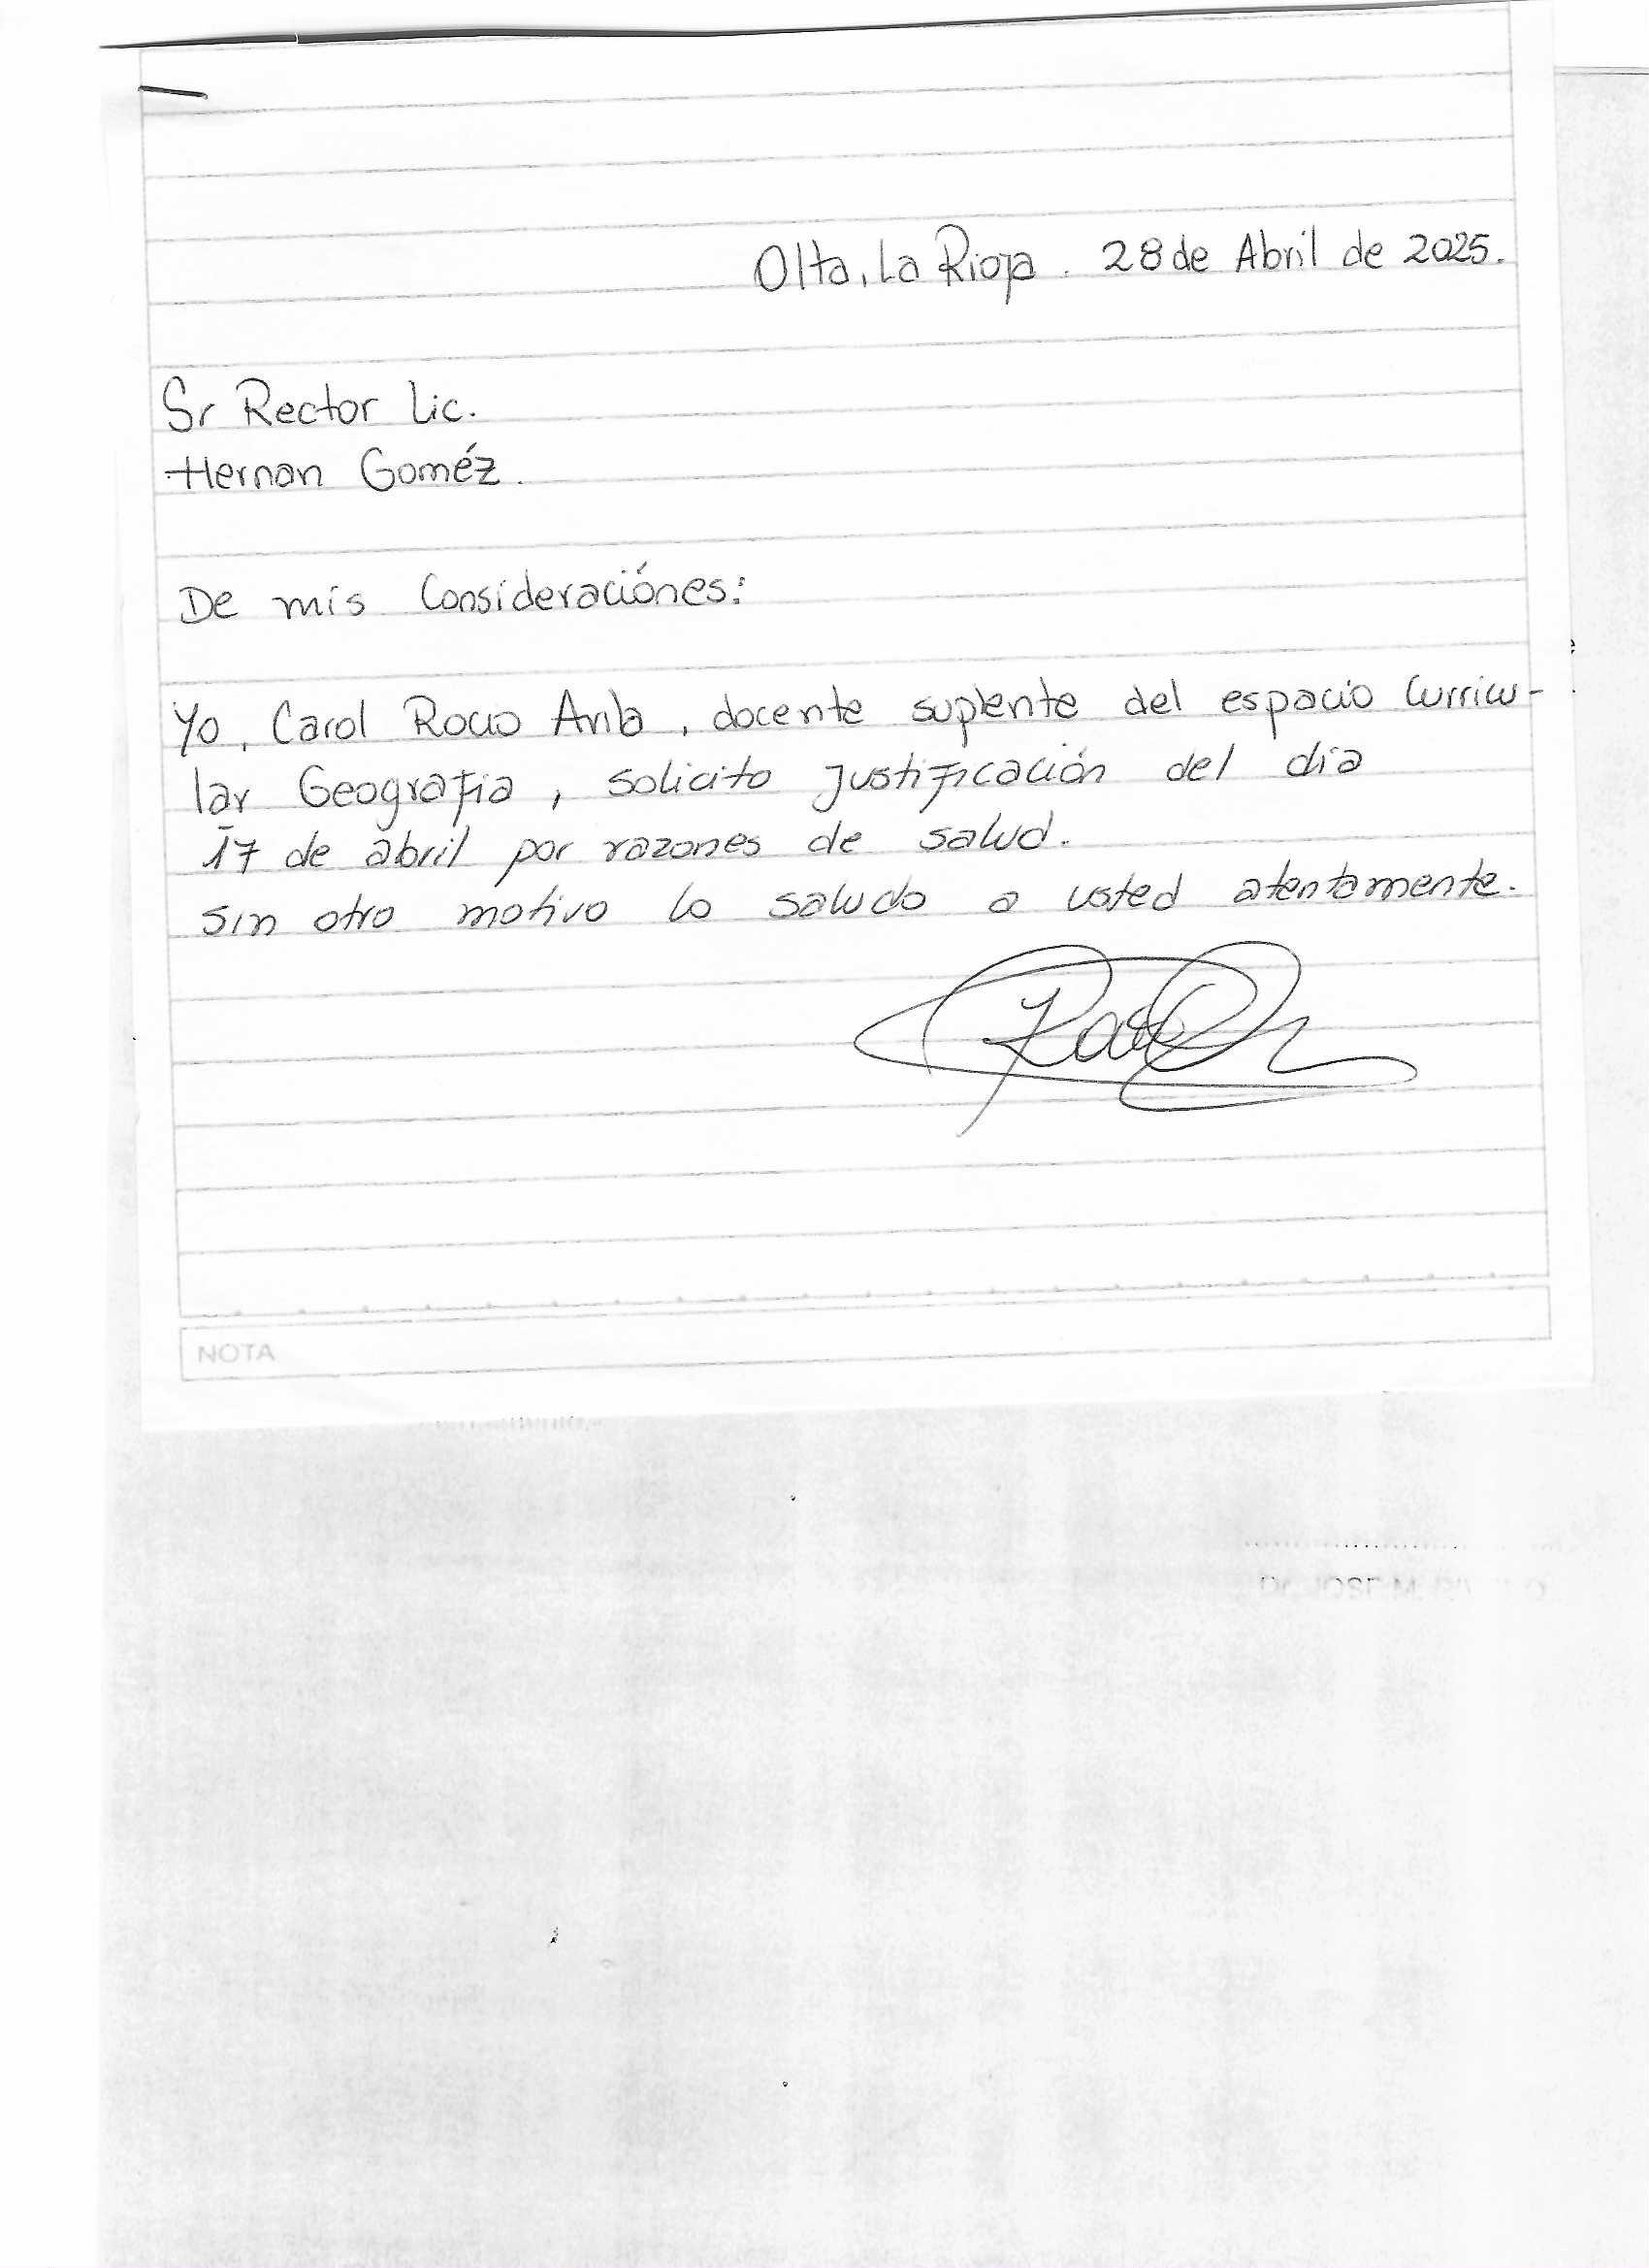 Olta, La Rioja. 28 de Abril de 2025.
Sr Rector Lic.
Hernan Goméz.
De mis Consideraciónes:
Yo, Carol Rocio Avila, docente suplente del espacio Curricu-
lar Geografia, solicito justificación del dia
17 de abril por razones de salud.
Sin otro motivo lo saludo a usted atentamente.
NOTA
Dr. JOSE M.